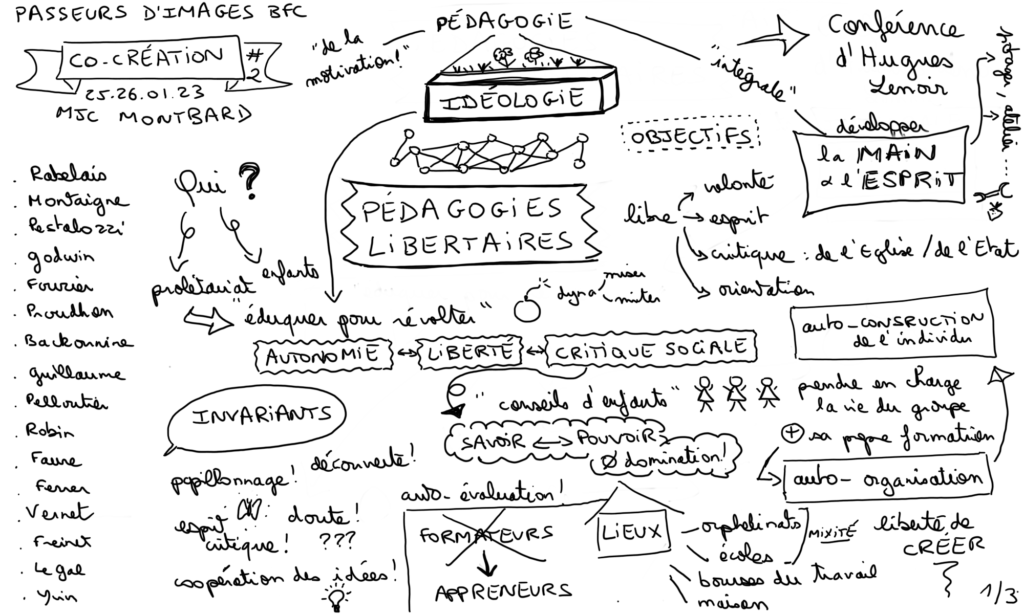 PASSEURS D'IMAGES BFC
CO-CRÉATION
#2
25.26.01.23
MJC MONTBARD
"de la
motivation!"
PÉDAGOGIE
IDÉOLOGIE
"intégrale"
Conférence
d'Hugues
Lenoir
potager, atelier...
développer
la MAIN
& l'ESPRIT
OBJECTIFS
PÉDAGOGIES
LIBERTAIRES
libre
volonté
esprit
critique : de l'Eglise / de l'Etat
orientation
. Rabelais
. Montaigne
. Pestalozzi
. godwin
. Fourier
. Proudhon
. Backounine
. guillaume
. Pelloutier
. Robin
. Faure
. Ferrer
. Vernet
. Freinet
. Le gal
. Yvin
Qui ?
prolétariat
enfants
"éduquer pour révolter"
dyna
miser
miter
AUTONOMIE
LIBERTÉ
CRITIQUE SOCIALE
auto-CONSRUCTION
de l'individu
INVARIANTS
"conseils d'enfants"
prendre en charge
la vie du groupe
+ sa propre formation
SAVOIR
POUVOIR
Ø domination!
auto-organisation
papillonnage!
découverte!
esprit
critique!
doute!
???
coopération des idées!
auto-évaluation!
FORMATEURS
APPRENEURS
LIEUX
orphelinats
écoles
bourses du travail
maison
MIXITÉ
liberté de
CRÉER
1/3